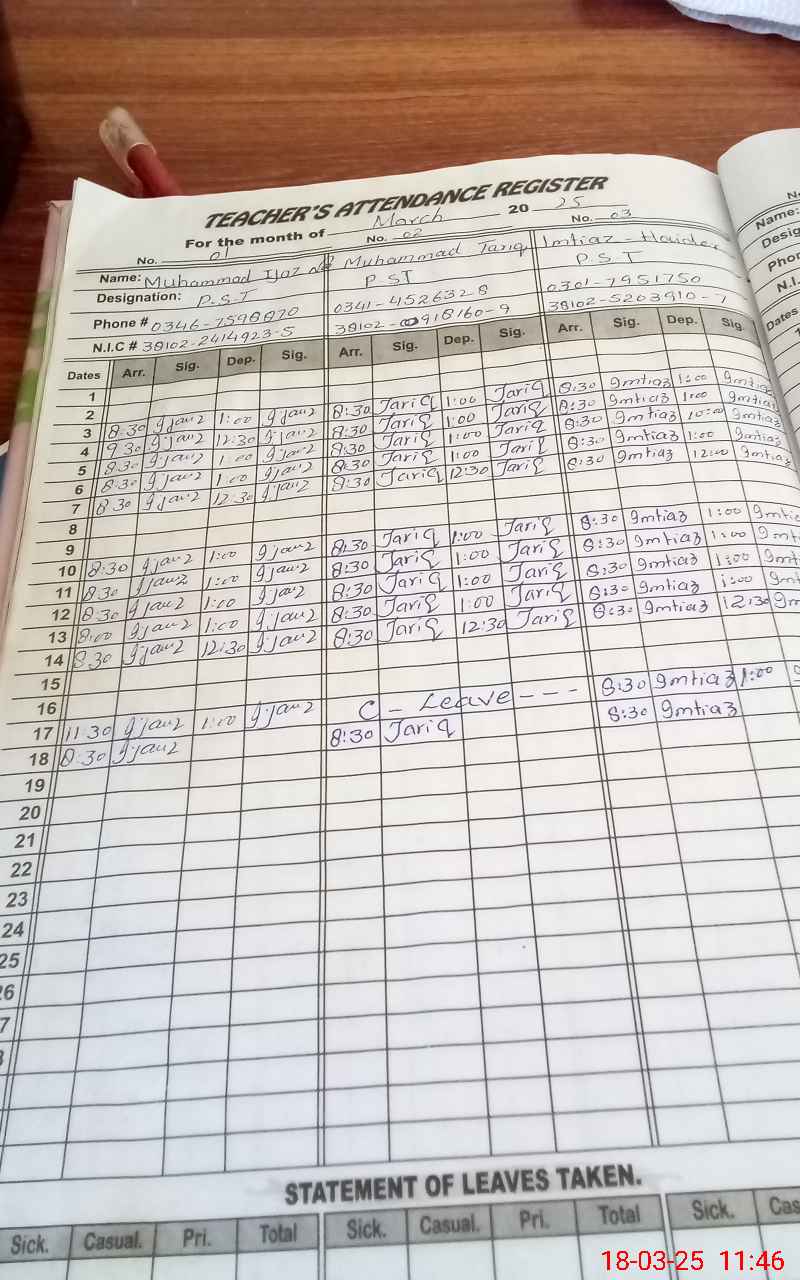 TEACHER'S ATTENDANCE REGISTER
For the month of March 20 25
No. 01 No. 02 No. 03
Name: Muhammad Ijaz Muhammad Tariq Imtiaz - Haider Name:
Designation: P.S.T P.ST P.S.T Desig
Phone # 0346-7598870 0341-4526328 0301-7951750 Phon
N.I.C # 38102-2414923-5 38102-0918160-9 38102-5203910-7 N.I.
Dates Arr. Sig. Dep. Sig. Arr. Sig. Dep. Sig. Arr. Sig. Dep. Sig. Dates
1
2
3 8:30 Ijaz 1:00 Ijaz 8:30 Tariq 1:00 Tariq 8:30 Imtiaz 1:00 Imtiaz
4 9 30 Ijaz 12:30 Ijaz 8:30 Tariq 1:00 Tariq 8:30 Imtiaz 1:00 Imtiaz
5 8:30 Ijaz 1:00 Ijaz 8:30 Tariq 1:00 Tariq 8:30 Imtiaz 10:00 Imtiaz
6 8:30 Ijaz 1:00 Ijaz 8:30 Tariq 1:00 Tariq 8:30 Imtiaz 1:00 Imtiaz
7 8 30 Ijaz 12:30 Ijaz 8:30 Tariq 12:30 Tariq 8:30 Imtiaz 12:00 Imtiaz
8
9
10 8:30 Ijaz 1:00 Ijaz 8:30 Tariq 1:00 Tariq 8:30 Imtiaz 1:00 Imtia
11 8:30 Ijaz 1:00 Ijaz 8:30 Tariq 1:00 Tariq 8:30 Imtiaz 1:00 Imt
12 8:30 Ijaz 1:00 Ijaz 8:30 Tariq 1:00 Tariq 8:30 Imtiaz 1:00 Imt
13 8:00 Ijaz 1:00 Ijaz 8:30 Tariq 1:00 Tariq 8:30 Imtiaz 1:00 Im
14 8:30 Ijaz 12:30 Ijaz 8:30 Tariq 12:30 Tariq 8:30 Imtiaz 12:30 Im
15
16
17 11:30 Ijaz 1:00 Ijaz C - Leave - - - 8:30 Imtiaz 1:00
18 8:30 Ijaz 8:30 Tariq 8:30 Imtiaz
19
20
21
22
23
24
25
26
7
STATEMENT OF LEAVES TAKEN.
Sick. Casual. Pri. Total Sick. Casual. Pri. Total Sick. Cas
18-03-25 11:46